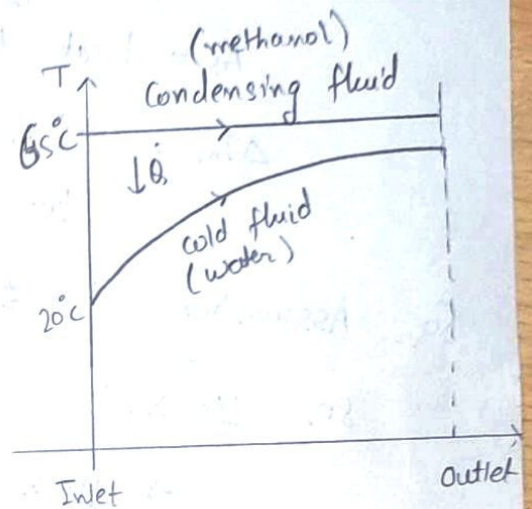 (methanol)
T
Condensing fluid
65°C
↓Q̇
cold fluid
(water)
20°C
Inlet
Outlet